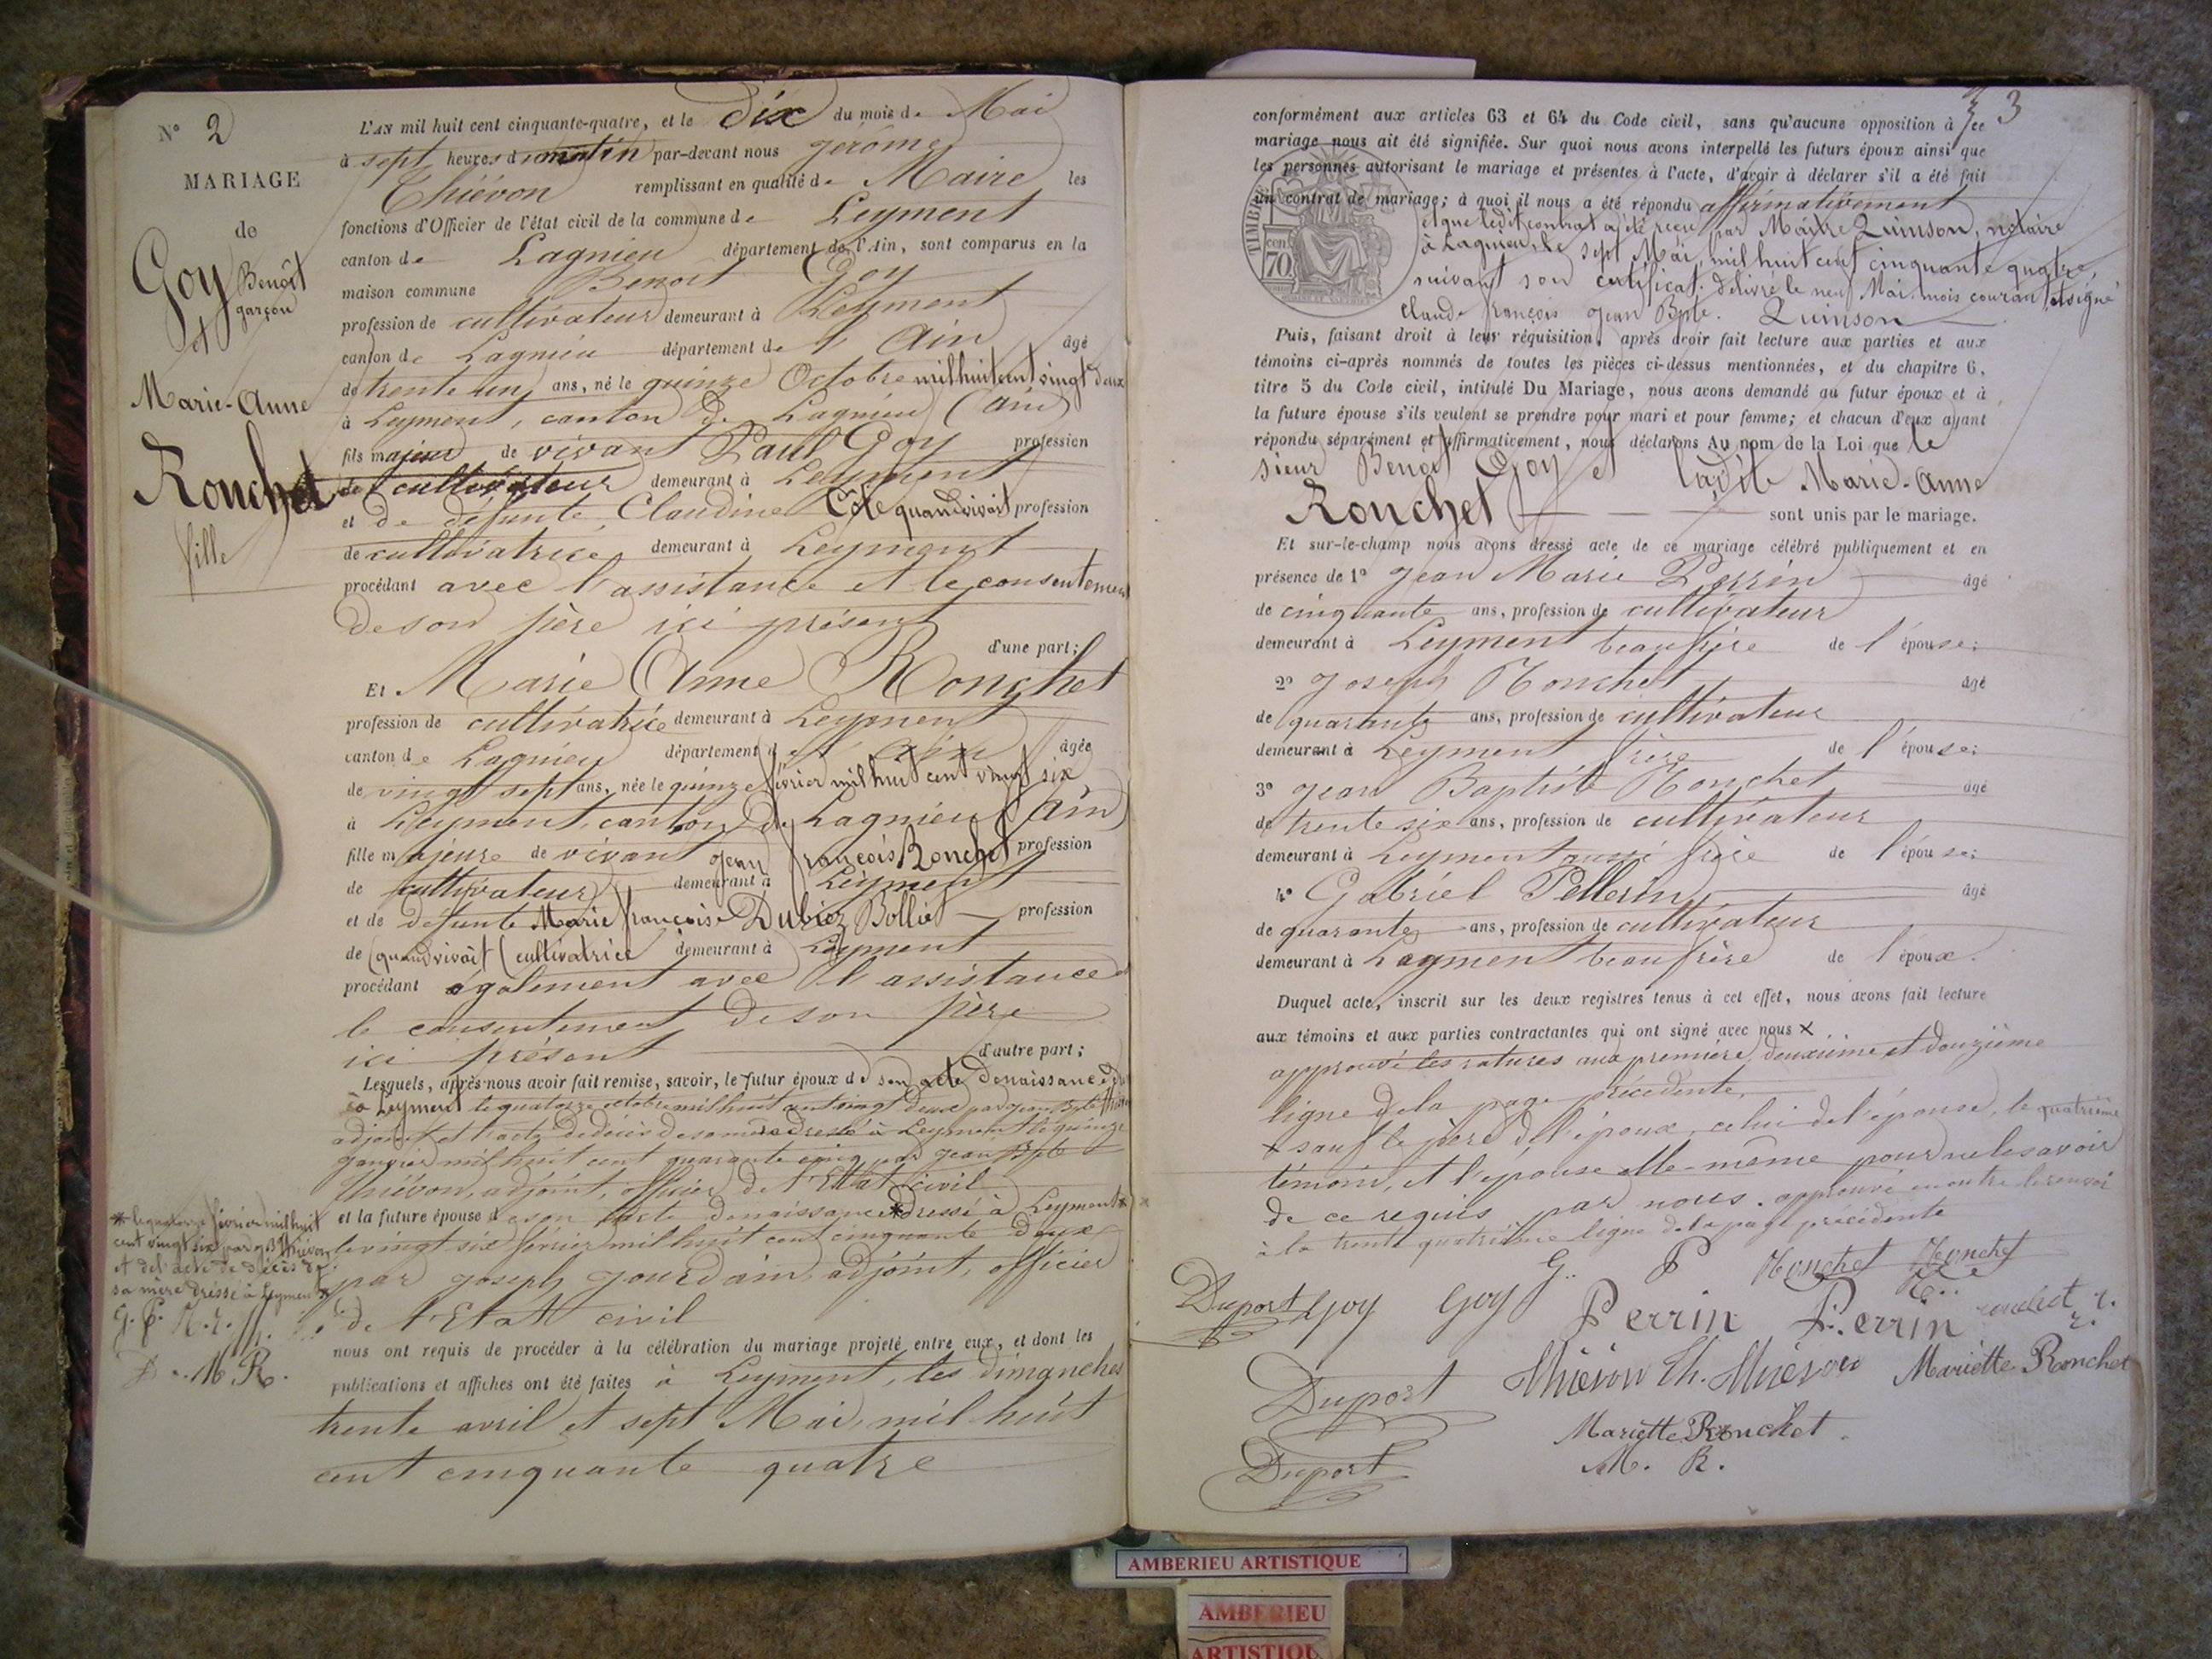 N° 2
MARIAGE
de
Goy Benoît
garçon
et
Marie-Anne
Ronchet
fille
L'AN mil huit cent cinquante-quatre, et le dix du mois de Mai
à sept heures du matin par-devant nous Jérôme
Thiévon remplissant en qualité de Maire les
fonctions d'Officier de l'état civil de la commune de Leyment
canton de Lagnieu département de l'Ain, sont comparus en la
maison commune Benoit Goy
profession de cultivateur demeurant à Leyment
canton de Lagnieu département de l'Ain âgé
de trente un ans, né le quinze Octobre mil huit cent vingt deux
à Leyment, canton de Lagnieu (Ain)
fils majeur de vivant Paul Goy profession
de cultivateur demeurant à Leyment
et de défunte Claudine Côte quand vivait profession
de cultivatrice demeurant à Leyment
procédant avec l'assistance et le consentement
de son père ici présent
d'une part;
Et Marie Anne Ronchet
profession de cultivatrice demeurant à Leyment
canton de Lagnieu département de l'Ain âgée
de vingt sept ans, née le quinze février mil huit cent vingt six
à Leyment, canton de Lagnieu (Ain)
fille majeure de vivant Jean françois Ronchet profession
de cultivateur demeurant à Leyment
et de défunte Marie françoise Dubiez Bolliet profession
de (quand vivait) cultivatrice demeurant à Leyment
procédant également avec l'assistance et
le consentement de son père
ici présent d'autre part;
Lesquels, après nous avoir fait remise, savoir, le futur époux de son acte de naissance
à Leyment le quatorze octobre mil huit cent vingt deux par Jean Bpte
adjoint et l'acte de décès de sa mère dressé à Leyment le quinze
janvier mil huit cent quarante cinq par Jean Bpte
Thiévon, adjoint, officier de l'Etat civil
et la future épouse de son acte de naissance * dressé à Leyment
le vingt six février mil huit cent cinquante deux
par Joseph Jourdain, adjoint, officier
de l'Etat civil
* le quatorze février mil huit
cent vingt six par J. Bte Thiévon
et de l'acte de décès de
sa mère dressé à Leyment
M. R.
nous ont requis de procéder à la célébration du mariage projeté entre eux, et dont les
publications et affiches ont été faites à Leyment, les dimanches
trente avril et sept Mai, mil huit
cent cinquante quatre
3
conformément aux articles 63 et 64 du Code civil, sans qu'aucune opposition à ce
mariage nous ait été signifiée. Sur quoi nous avons interpellé les futurs époux ainsi que
les personnes autorisant le mariage et présentes à l'acte, d'avoir à déclarer s'il a été fait
un contrat de mariage; à quoi il nous a été répondu affirmativement
et que ledit contrat a été reçu par Maître Quinson, notaire
à Lagnieu, le sept Mai, mil huit cent cinquante quatre,
suivant son certificat délivré le neuf Mai, mois courant, et signé
Claude françois Jean Bpte. Quinson
TIMBRE
cen
70
Puis, faisant droit à leur réquisition, après avoir fait lecture aux parties et aux
témoins ci-après nommés de toutes les pièces ci-dessus mentionnées, et du chapitre 6,
titre 5 du Code civil, intitulé Du Mariage, nous avons demandé au futur époux et à
la future épouse s'ils veulent se prendre pour mari et pour femme; et chacun d'eux ayant
répondu séparément et affirmativement, nous déclarons Au nom de la Loi que le
sieur Benoit Goy et ladite Marie-Anne
Ronchet sont unis par le mariage.
Et sur-le-champ nous avons dressé acte de ce mariage célébré publiquement et en
présence de 1° Jean Marie Perrin âgé
de cinquante ans, profession de cultivateur
demeurant à Leyment beaufrère de l'épouse;
2° Joseph Ronchet âgé
de quarante ans, profession de cultivateur
demeurant à Leyment frère de l'épouse;
3° Jean Baptiste Ronchet âgé
de trente six ans, profession de cultivateur
demeurant à Leyment aussi frère de l'épouse;
4° Gabriel Pellerin âgé
de quarante ans, profession de cultivateur
demeurant à Leyment beaufrère de l'époux.
Duquel acte, inscrit sur les deux registres tenus à cet effet, nous avons fait lecture
aux témoins et aux parties contractantes qui ont signé avec nous x
approuvé les ratures aux première, deuxième et douzième
ligne de la page précédente.
x sauf le père de l'époux, celui de l'épouse, le quatrième
témoin, et l'épouse elle-même pour ne le savoir
de ce requis par nous. approuvé en outre le renvoi
à la trente quatrième ligne de la page précédente
G. P Ronchet Ronchet
Duport Goy Goy Perrin Perrin
Duport Thiévon Th. Thiévon Mariette Ronchet
Mariette Ronchet
Duport M. R.
AMBERIEU ARTISTIQUE
AMBERIEU
ARTISTIQU